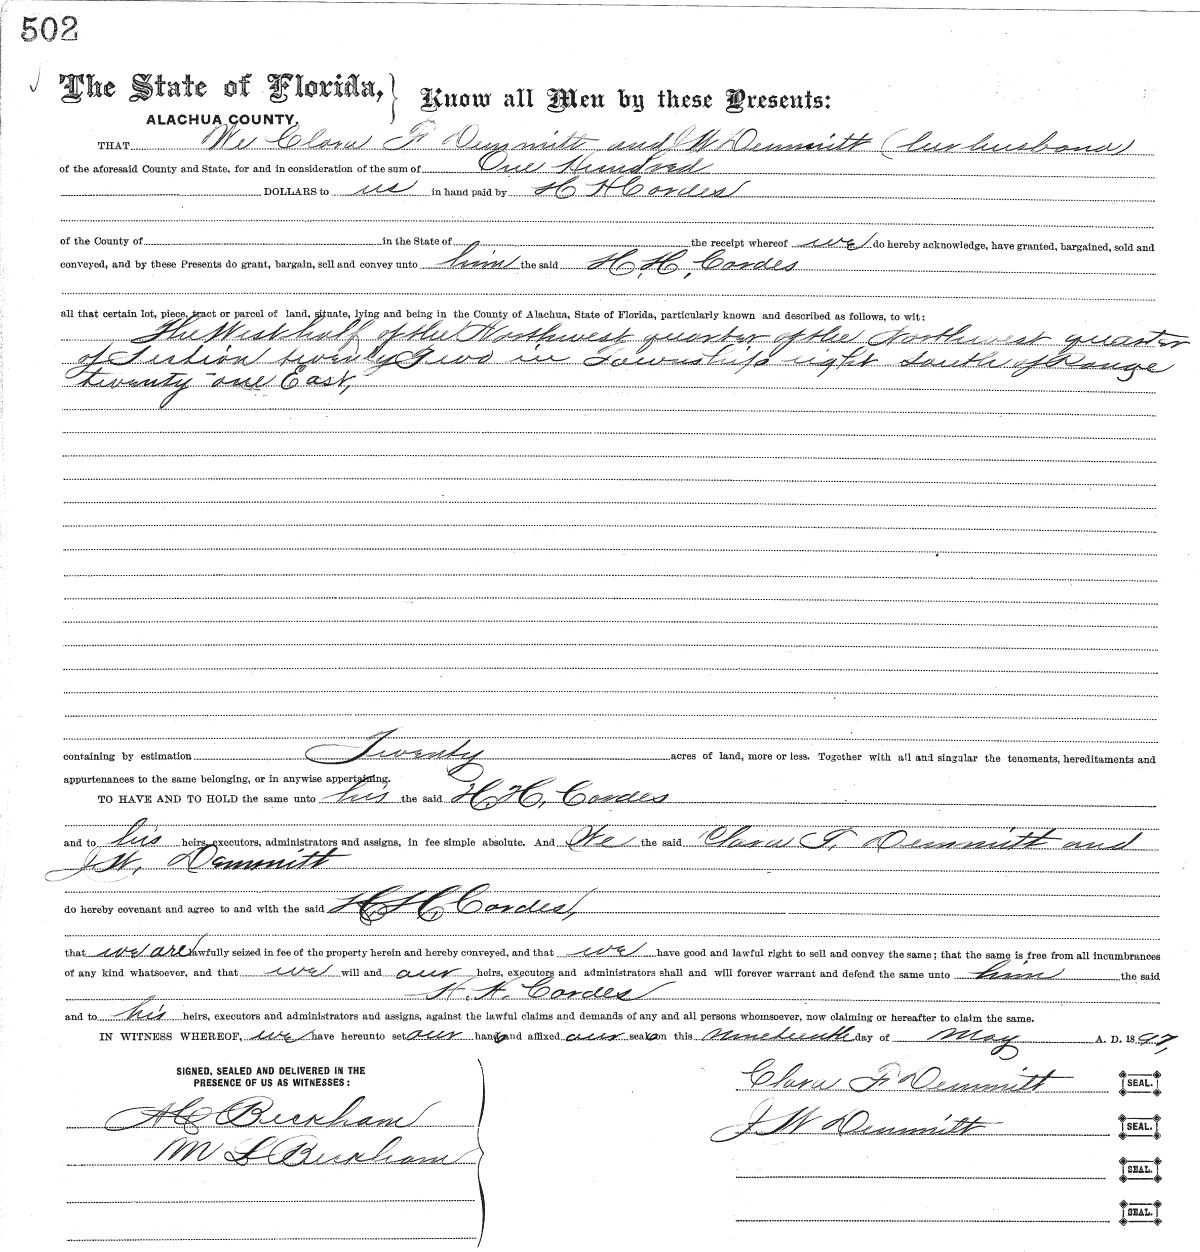 502
The State of Florida, } Know all Men by these Presents:
ALACHUA COUNTY.
THAT We Clara F Demmitt and J W Demmitt (her husband)
of the aforesaid County and State, for and in consideration of the sum of One Hundred
DOLLARS to us in hand paid by H H Cordes
of the County of in the State of the receipt whereof we do hereby acknowledge, have granted, bargained, sold and
conveyed, and by these Presents do grant, bargain, sell and convey unto him the said H. H. Cordes
all that certain lot, piece, tract or parcel of land, situate, lying and being in the County of Alachua, State of Florida, particularly known and described as follows, to wit:
The West half of the Northwest quarter of the Northwest quarter
of Section twenty Two in Township eight South of Range
twenty-one East,
containing by estimation Twenty acres of land, more or less. Together with all and singular the tenements, hereditaments and
appurtenances to the same belonging, or in anywise appertaining.
TO HAVE AND TO HOLD the same unto his the said H. H. Cordes
and to his heirs, executors, administrators and assigns, in fee simple absolute. And We the said Clara F. Demmitt and
J W. Demmitt
do hereby covenant and agree to and with the said H H Cordes,
that we are lawfully seized in fee of the property herein and hereby conveyed, and that we have good and lawful right to sell and convey the same; that the same is free from all incumbrances
of any kind whatsoever, and that we will and our heirs, executors and administrators shall and will forever warrant and defend the same unto him the said
H. H. Cordes
and to his heirs, executors and administrators and assigns, against the lawful claims and demands of any and all persons whomsoever, now claiming or hereafter to claim the same.
IN WITNESS WHEREOF, we have hereunto set our hands and affixed our seals on this nineteenth day of May A. D. 1897,
SIGNED, SEALED AND DELIVERED IN THE
PRESENCE OF US AS WITNESSES:
Clara F Demmitt SEAL.
H C Beckham
J W Demmitt SEAL.
M L Beckham
SEAL.
SEAL.